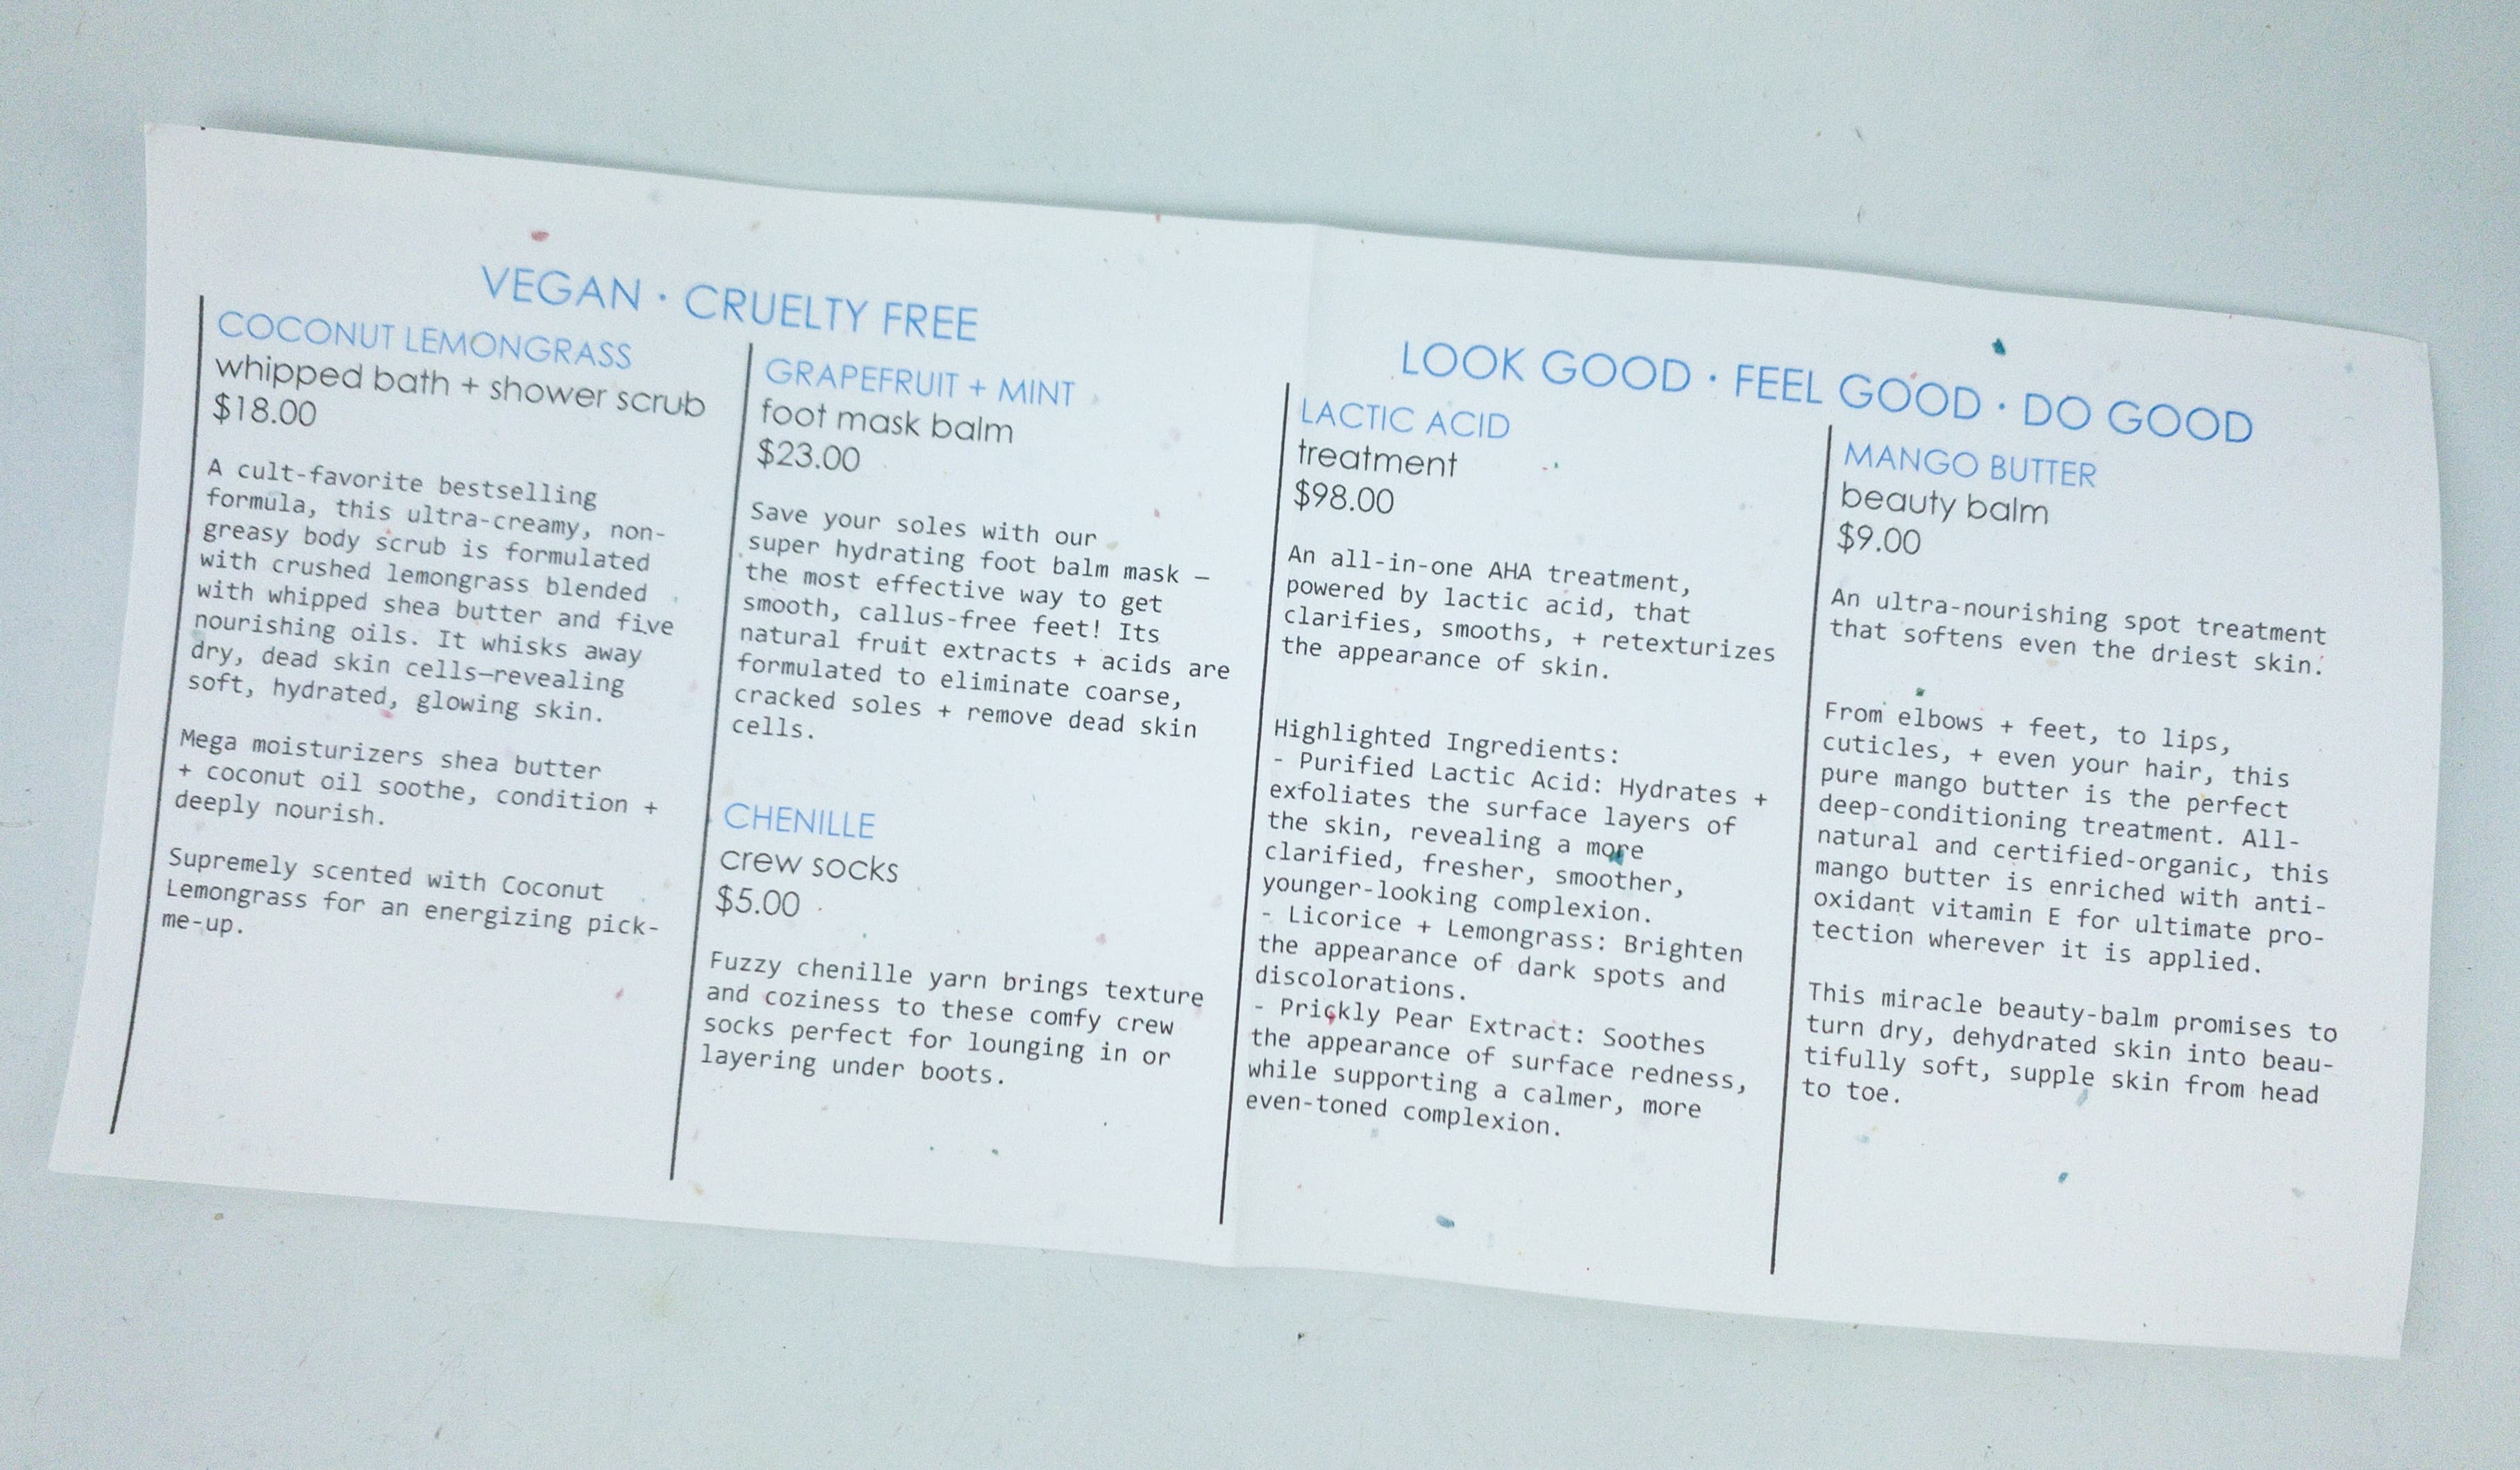 VEGAN · CRUELTY FREE
COCONUT LEMONGRASS
whipped bath + shower scrub
$18.00
A cult-favorite bestselling
formula, this ultra-creamy, non-
greasy body scrub is formulated
with crushed lemongrass blended
with whipped shea butter and five
nourishing oils. It whisks away
dry, dead skin cells—revealing
soft, hydrated, glowing skin.
Mega moisturizers shea butter
+ coconut oil soothe, condition +
deeply nourish.
Supremely scented with Coconut
Lemongrass for an energizing pick-
me-up.
GRAPEFRUIT + MINT
foot mask balm
$23.00
Save your soles with our
super hydrating foot balm mask —
the most effective way to get
smooth, callus-free feet! Its
natural fruit extracts + acids are
formulated to eliminate coarse,
cracked soles + remove dead skin
cells.
CHENILLE
crew socks
$5.00
Fuzzy chenille yarn brings texture
and coziness to these comfy crew
socks perfect for lounging in or
layering under boots.
LOOK GOOD · FEEL GOOD · DO GOOD
LACTIC ACID
treatment
$98.00
An all-in-one AHA treatment,
powered by lactic acid, that
clarifies, smooths, + retexturizes
the appearance of skin.
Highlighted Ingredients:
- Purified Lactic Acid: Hydrates +
exfoliates the surface layers of
the skin, revealing a more
clarified, fresher, smoother,
younger-looking complexion.
- Licorice + Lemongrass: Brighten
the appearance of dark spots and
discolorations.
- Prickly Pear Extract: Soothes
the appearance of surface redness,
while supporting a calmer, more
even-toned complexion.
MANGO BUTTER
beauty balm
$9.00
An ultra-nourishing spot treatment
that softens even the driest skin.
From elbows + feet, to lips,
cuticles, + even your hair, this
pure mango butter is the perfect
deep-conditioning treatment. All-
natural and certified-organic, this
mango butter is enriched with anti-
oxidant vitamin E for ultimate pro-
tection wherever it is applied.
This miracle beauty-balm promises to
turn dry, dehydrated skin into beau-
tifully soft, supple skin from head
to toe.